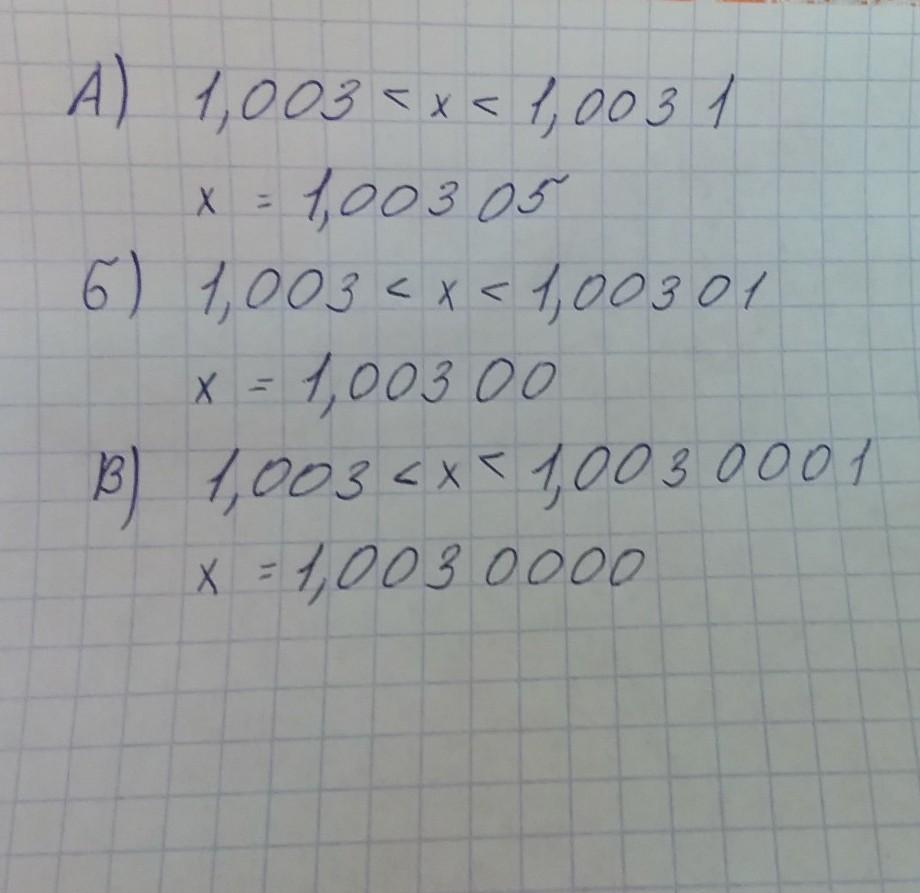 А) 1,003 < x < 1,0031
x = 1,00305
Б) 1,003 < x < 1,00301
x = 1,00300
В) 1,003 < x < 1,0030001
x = 1,0030000